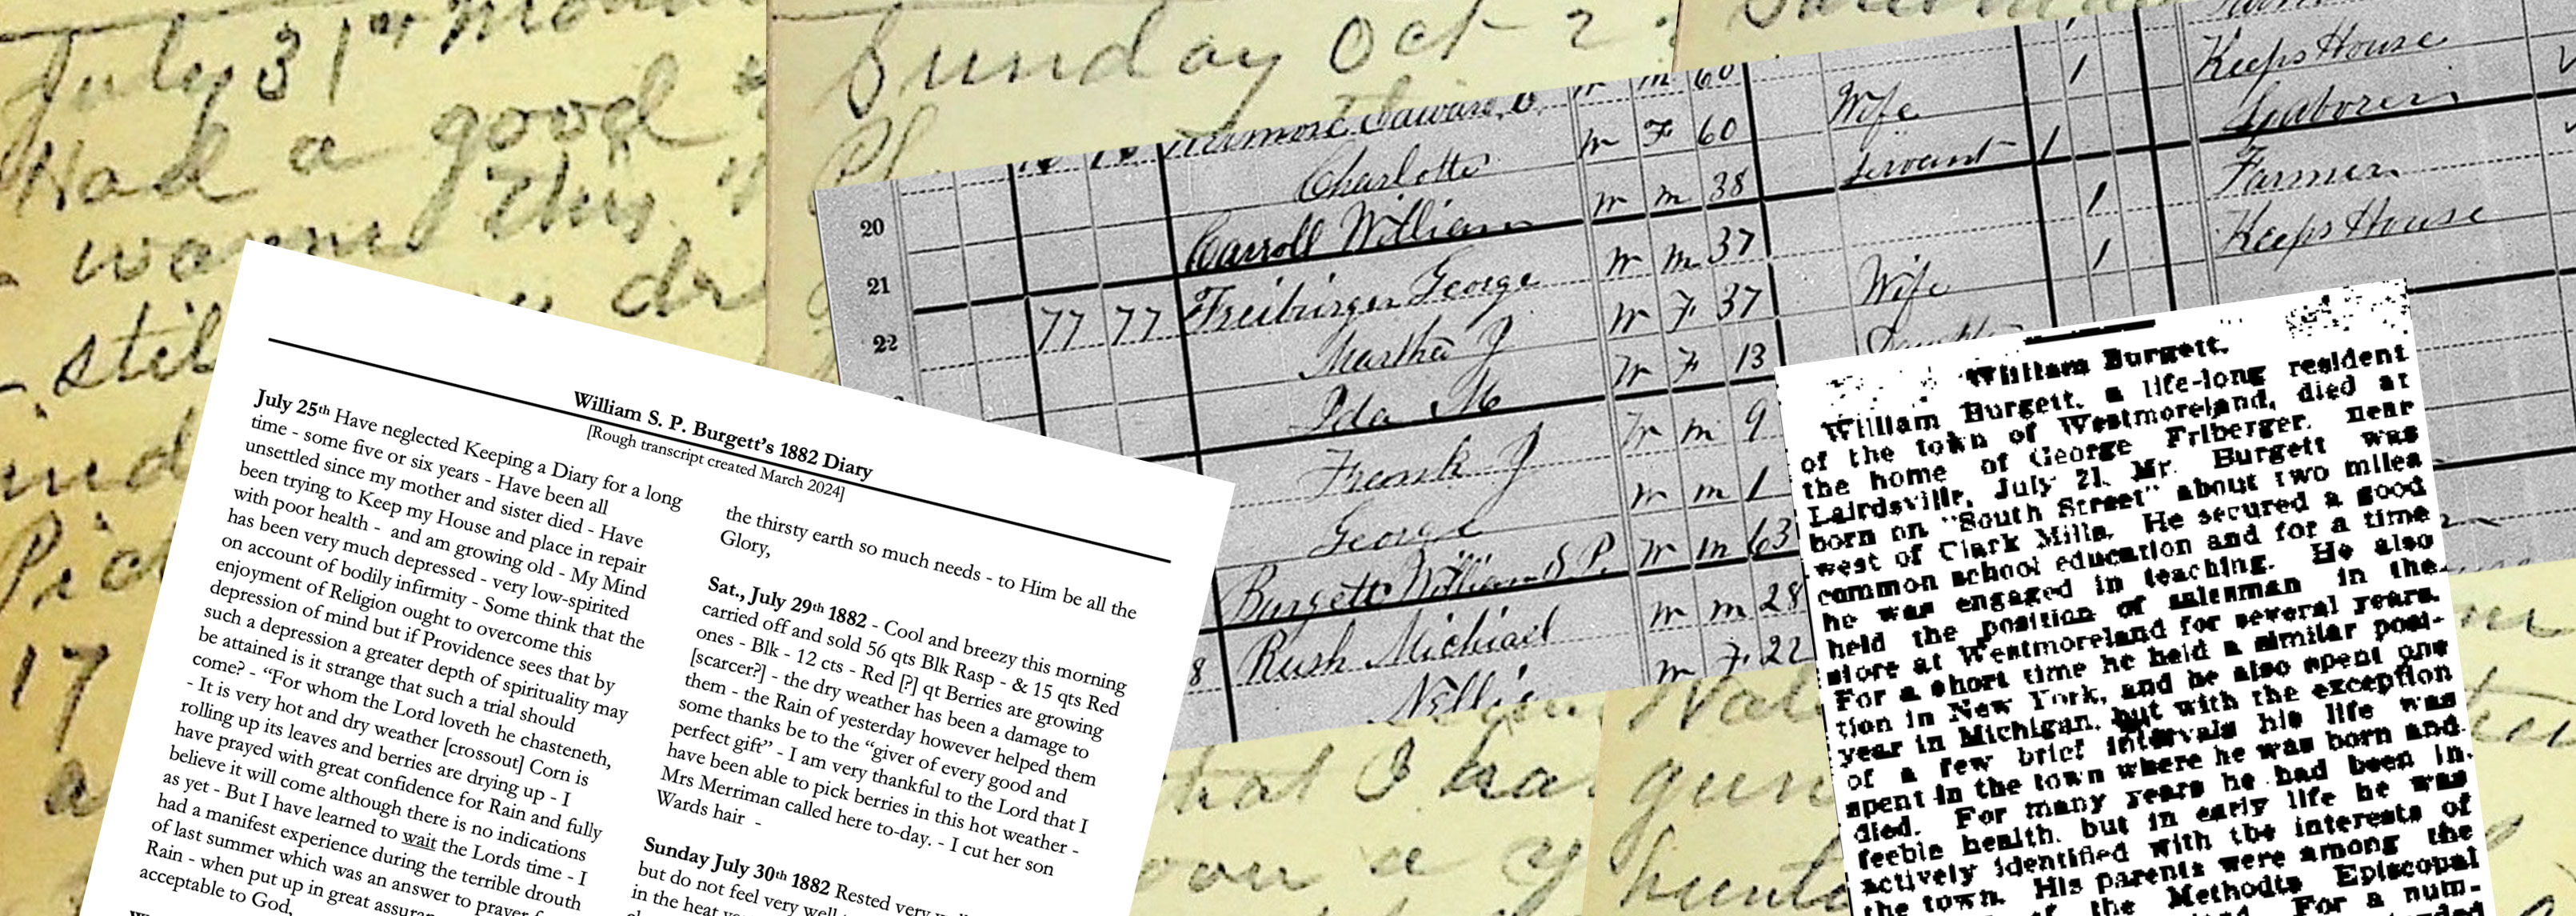 July 31st
Had a good
warm this
stil
dr
Sunday Oct 2
17
a
that I ha
Wife
1
Keeps House
m 60
Charlotte
W F 60
Servant
1
Laborer
20
Carroll William
W M 38
Farmer
21
77 77 Freiburger George
W M 37
1
Keeps House
22
Martha J
W F 37
Wife
1
Ida M
W F 13
Frank J
W M 9
George
W M 1
Burgett William S P.
W M 63
8
Rush Michael
W M 28
Nellie
W F 22
William S. P. Burgett’s 1882 Diary
[Rough transcript created March 2024]
July 25th Have neglected Keeping a Diary for a long
time - some five or six years - Have been all
unsettled since my mother and sister died - Have
been trying to Keep my House and place in repair
with poor health - and am growing old - My Mind
has been very much depressed - very low-spirited
on account of bodily infirmity - Some think that the
enjoyment of Religion ought to overcome this
depression of mind but if Providence sees that by
such a depression a greater depth of spirituality may
be attained is it strange that such a trial should
come? - “For whom the Lord loveth he chasteneth,
- It is very hot and dry weather [crossout] Corn is
rolling up its leaves and berries are drying up - I
have prayed with great confidence for Rain and fully
believe it will come although there is no indications
as yet - But I have learned to wait the Lords time - I
had a manifest experience during the terrible drouth
of last summer which was an answer to prayer
Rain - when put up in great
acceptable to God,
the thirsty earth so much needs - to Him be all the
Glory,
Sat., July 29th 1882 - Cool and breezy this morning
carried off and sold 56 qts Blk Rasp - & 15 qts Red
ones - Blk - 12 cts - Red [?] qt Berries are growing
[scarcer?] - the dry weather has been a damage to
them - the Rain of yesterday however helped them
some thanks be to the “giver of every good and
perfect gift” - I am very thankful to the Lord that I
have been able to pick berries in this hot weather -
Mrs Merriman called here to-day. - I cut her son
Wards hair -
Sunday July 30th 1882 Rested very
but do not feel very well
in the heat
William Burgett.
William Burgett, a life-long resident
of the town of Westmoreland, died at
the home of George Friberger, near
Lairdsville, July 21. Mr. Burgett was
born on "South Street" about two miles
west of Clark Mills. He secured a good
common school education and for a time
he was engaged in teaching. He also
held the position of salesman in the
store at Westmoreland for several years.
For a short time he held a similar posi-
tion in New York, and he also spent one
year in Michigan, but with the exception
of a few brief intervals his life was
spent in the town where he was born and
died. For many years he had been in
feeble health, but in early life he was
actively identified with the interests of
the town. His parents were among the
of the Methodts Episcopal
For a num-